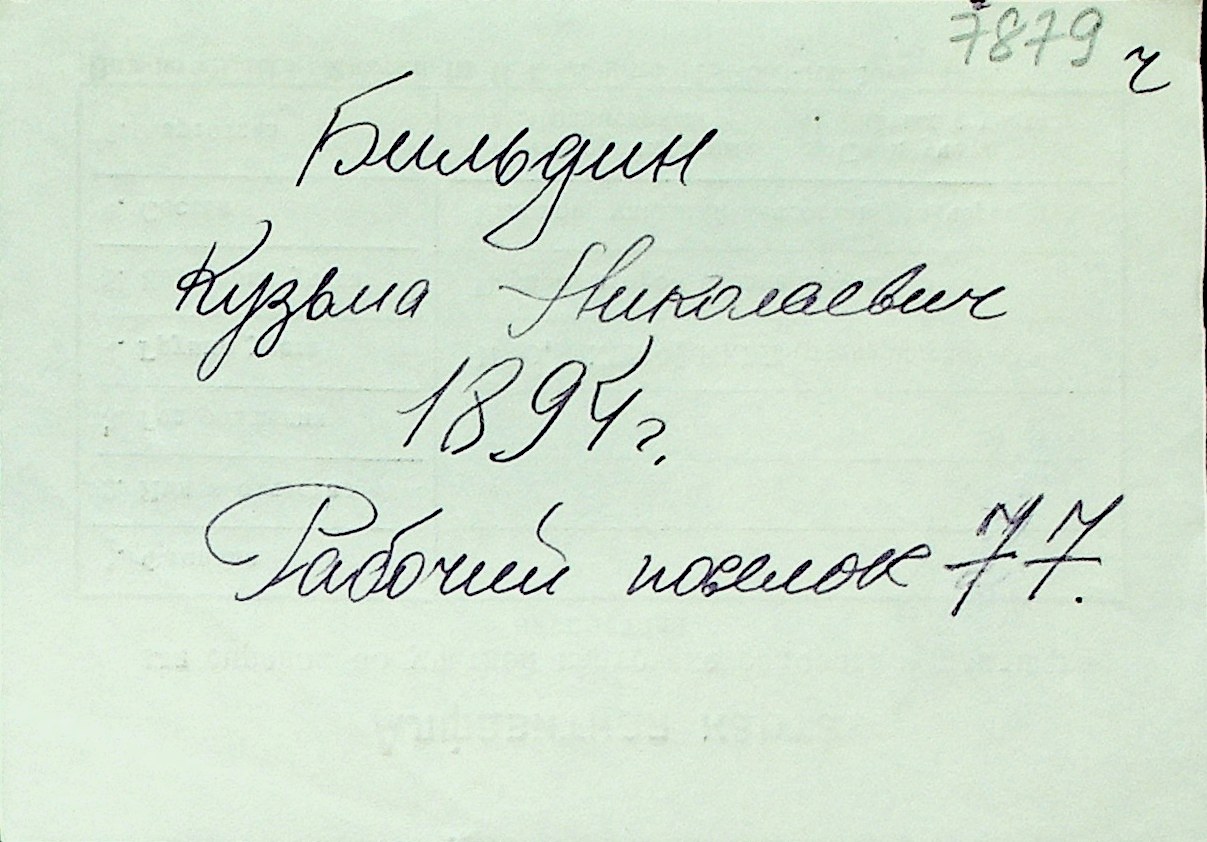 7879 ч
Бильдин
Кузьма Николаевич
1894г.
Рабочий поселок 77.